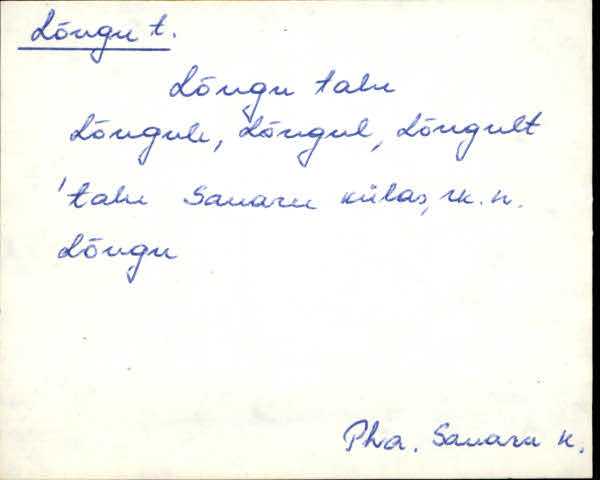 Lõngu t.
Lõngu talu
Lõngule, Lõngul, Lõngult
'talu Sanaru külas, rk. n.
Lõngu
Pha. Sanaru k.